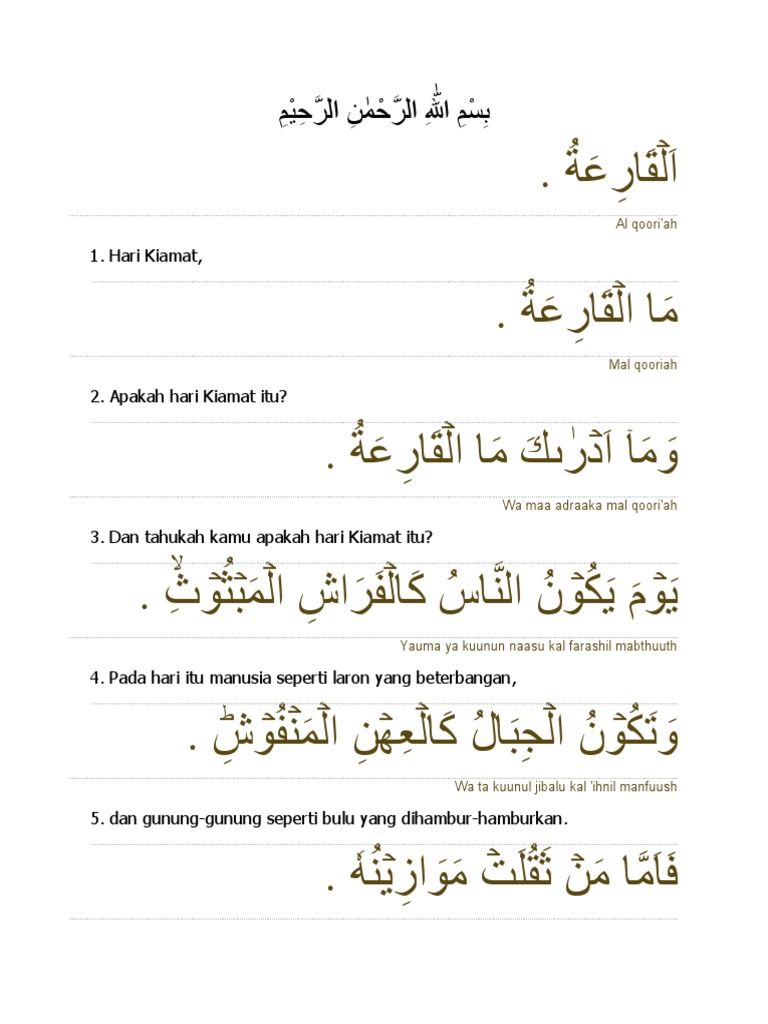 بِسْمِ اللّٰهِ الرَّحْمٰنِ الرَّحِيْمِ
اَلۡقَارِعَةُ .
Al qoori'ah
1. Hari Kiamat,
مَا الۡقَارِعَةُ .
Mal qooriah
2. Apakah hari Kiamat itu?
وَمَاۤ اَدۡرٰٮكَ مَا الۡقَارِعَةُ .
Wa maa adraaka mal qoori'ah
3. Dan tahukah kamu apakah hari Kiamat itu?
يَوۡمَ يَكُوۡنُ النَّاسُ كَالۡفَرَاشِ الۡمَبۡثُوۡثِۙ .
Yauma ya kuunun naasu kal farashil mabthuuth
4. Pada hari itu manusia seperti laron yang beterbangan,
وَتَكُوۡنُ الۡجِبَالُ كَالۡعِهۡنِ الۡمَنۡفُوۡشِؕ .
Wa ta kuunul jibalu kal 'ihnil manfuush
5. dan gunung-gunung seperti bulu yang dihambur-hamburkan.
فَاَمَّا مَنۡ ثَقُلَتۡ مَوَازِيۡنُهٗ .